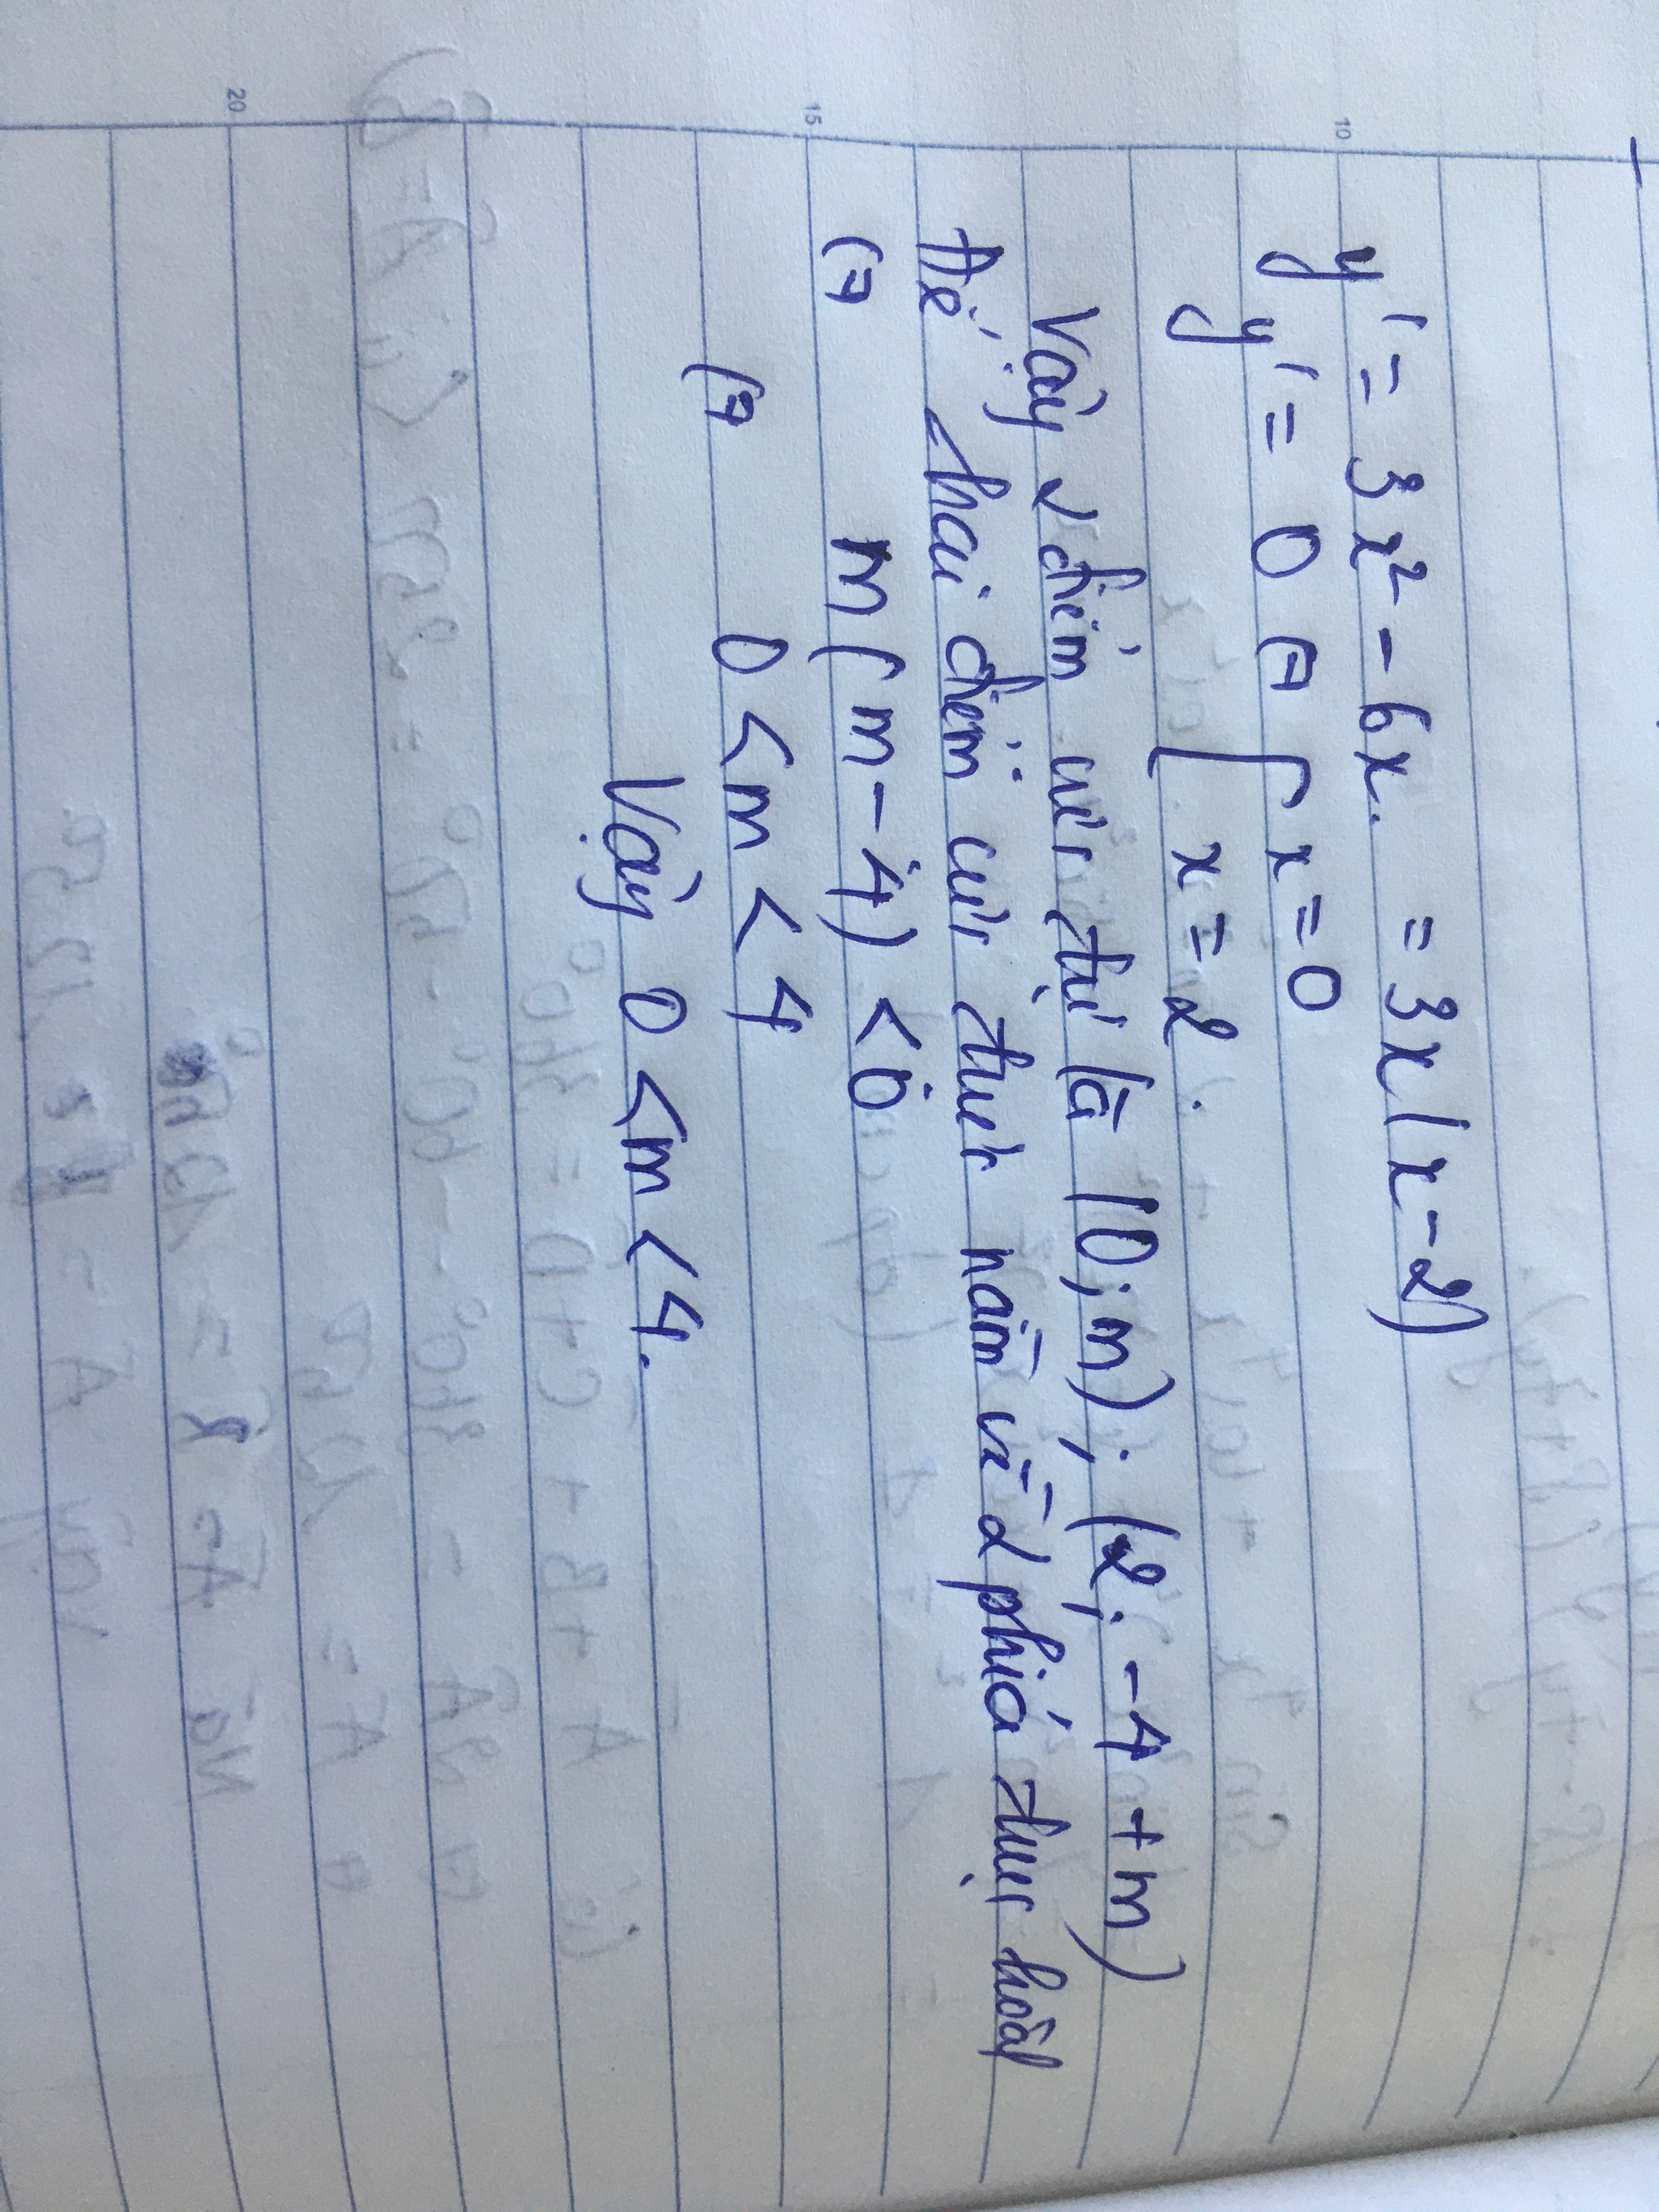 y' = 3x² - 6x. = 3x(x-2)
y' = 0 ⇔ [ x = 0
x = 2.
Vậy 2 điểm cực trị là (0; m); (2; -4 + m)
Để hai điểm cực trị nằm về 2 phía trục hoành
⇔ m(m-4) < 0
⇔ 0 < m < 4
Vậy 0 < m < 4.
10
15
20